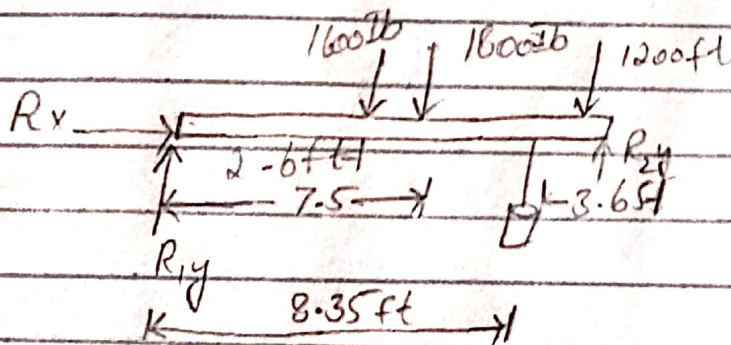 1600Ib 1800Ib 1200ft
Rx
2-6ft
R2y
7.5 3.65f
R1y
8.35ft